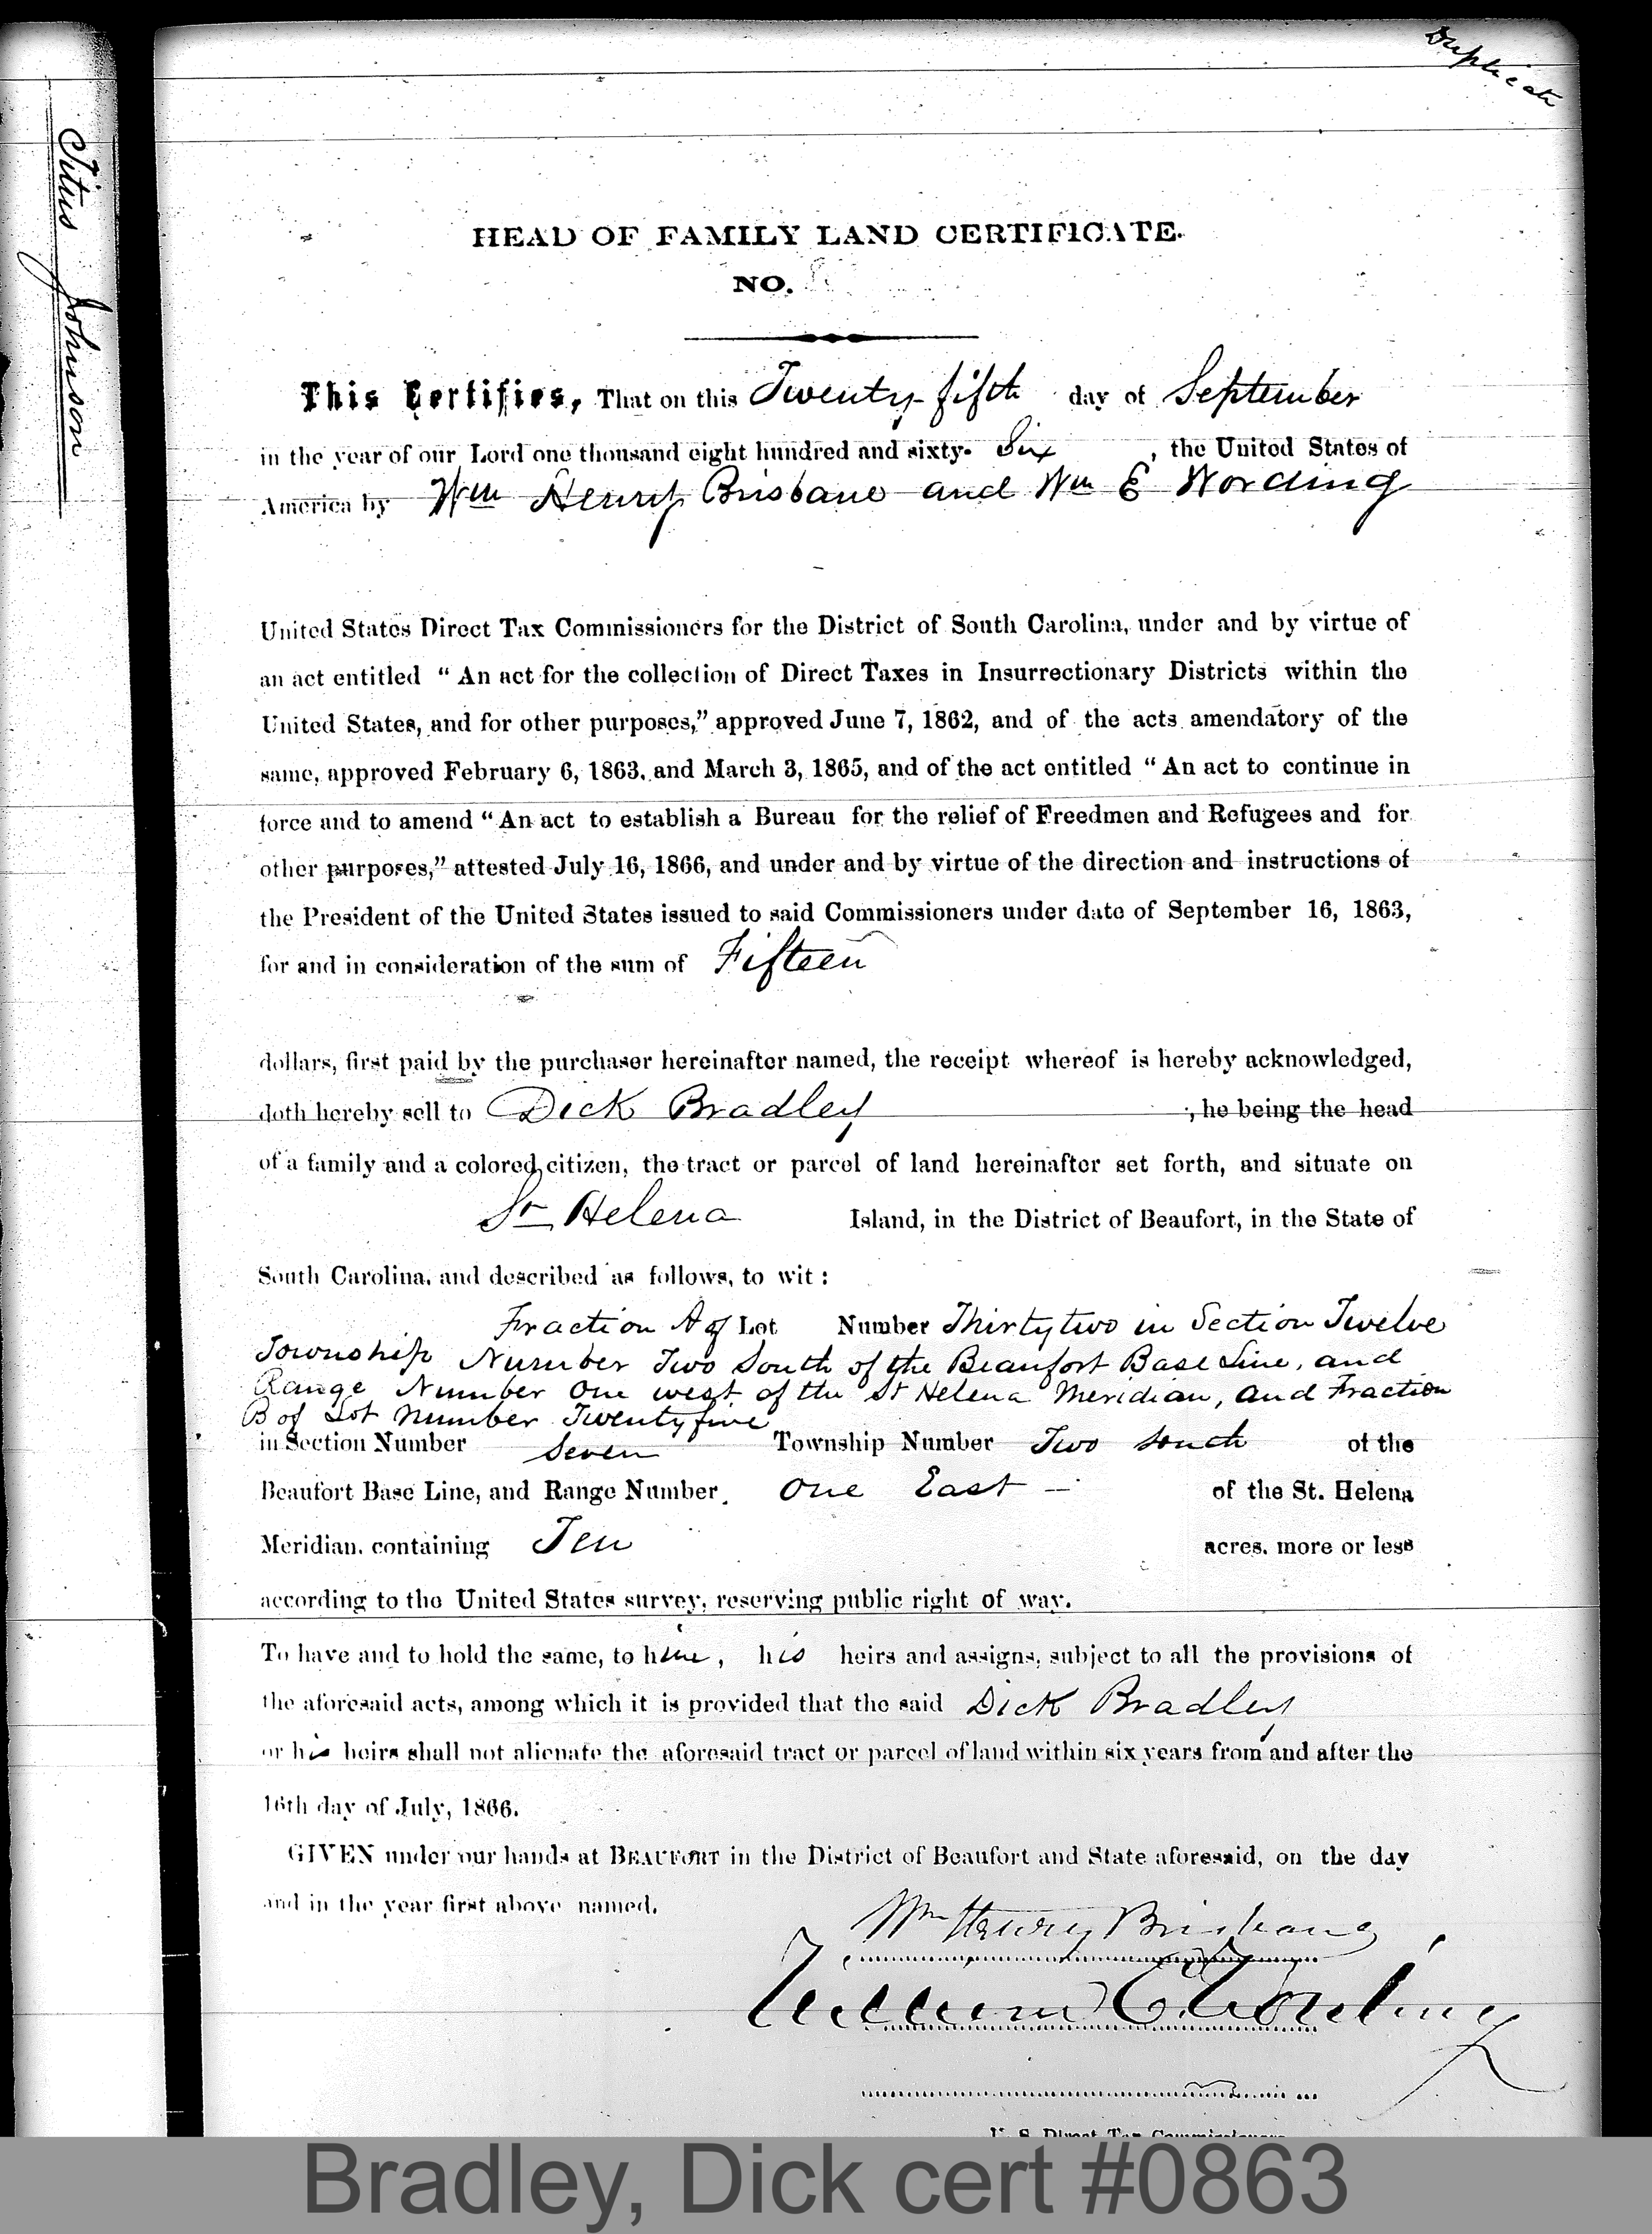 Duplicate
Titus Johnson
HEAD OF FAMILY LAND CERTIFICATE.
NO.
This Certifies, That on this Twenty-fifth day of September
in the year of our Lord one thousand eight hundred and sixty- Six , the United States of
America by Wm Henry Brisbane and Wm E Wording
United States Direct Tax Commissioners for the District of South Carolina, under and by virtue of
an act entitled “ An act for the collection of Direct Taxes in Insurrectionary Districts within the
United States, and for other purposes,” approved June 7, 1862, and of the acts amendatory of the
same, approved February 6, 1863, and March 3, 1865, and of the act entitled “ An act to continue in
force and to amend “ An act to establish a Bureau for the relief of Freedmen and Refugees and for
other purposes,” attested July 16, 1866, and under and by virtue of the direction and instructions of
the President of the United States issued to said Commissioners under date of September 16, 1863,
for and in consideration of the sum of Fifteen
dollars, first paid by the purchaser hereinafter named, the receipt whereof is hereby acknowledged,
doth hereby sell to Dick Bradley , he being the head
of a family and a colored citizen, the tract or parcel of land hereinafter set forth, and situate on
St Helena Island, in the District of Beaufort, in the State of
South Carolina, and described as follows, to wit :
Fraction A of Lot Number Thirty two in Section Twelve
Township Number Two South of the Beaufort Base Line, and
Range Number One west of the St Helena Meridian, and Fraction
B of Lot Number Twenty five
in Section Number Seven Township Number Two South of the
Beaufort Base Line, and Range Number One East of the St. Helena
Meridian, containing Ten acres, more or less
according to the United States survey, reserving public right of way.
To have and to hold the same, to him, his heirs and assigns, subject to all the provisions of
the aforesaid acts, among which it is provided that the said Dick Bradley
or his heirs shall not alienate the aforesaid tract or parcel of land within six years from and after the
16th day of July, 1866.
GIVEN under our hands at BEAUFORT in the District of Beaufort and State aforesaid, on the day
and in the year first above named.
Wm Henry Brisbane
William E. Wording
U. S. Direct Tax Commissioners
Bradley, Dick cert #0863